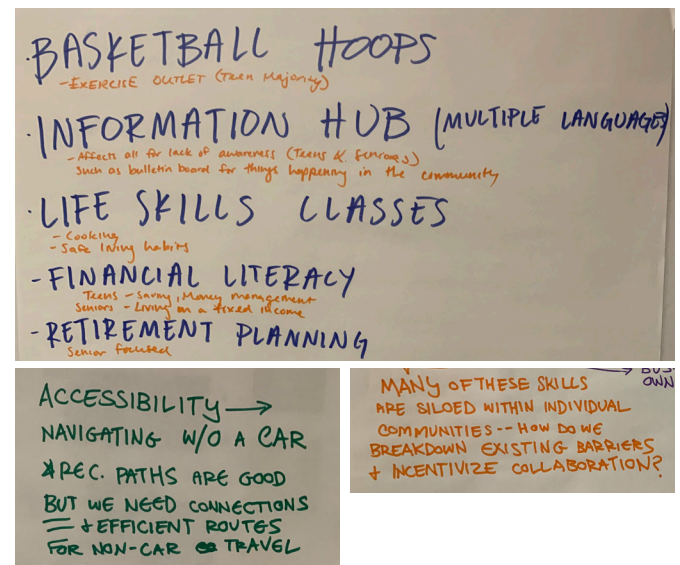 · BASKETBALL HOOPS
- EXERCISE OUTLET (Teen Majority)
· INFORMATION HUB (MULTIPLE LANGUAGES)
- Affects all for lack of awareness (Teens & Seniors)
Such as bulletin board for things happening in the community
· LIFE SKILLS CLASSES
- Cooking
- Safe living habits
- FINANCIAL LITERACY
Teens - Saving, Money management
Seniors - Living on a fixed income
- RETIREMENT PLANNING
Senior focused
ACCESSIBILITY →
NAVIGATING W/O A CAR
* REC. PATHS ARE GOOD
BUT WE NEED CONNECTIONS
+ EFFICIENT ROUTES
FOR NON-CAR TRAVEL
→ BUS
OWN
MANY OF THESE SKILLS
ARE SILOED WITHIN INDIVIDUAL
COMMUNITIES -- HOW DO WE
BREAKDOWN EXISTING BARRIERS
+ INCENTIVIZE COLLABORATION?